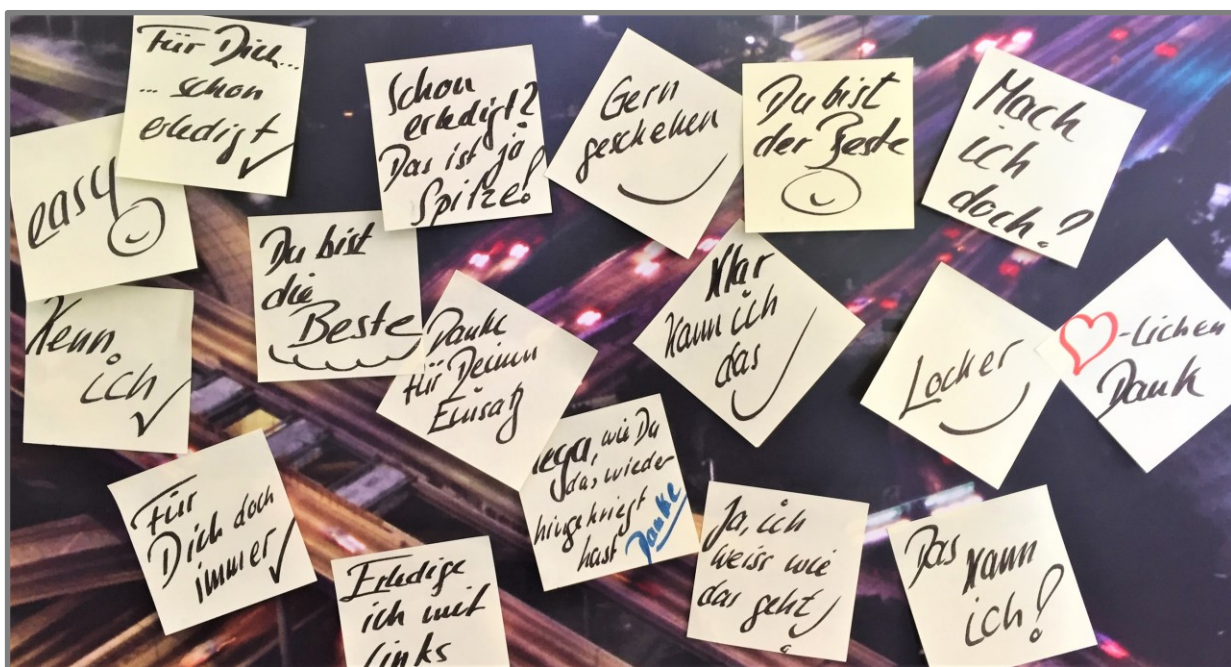 Für Dich...
... schon
erledigt
Schon
erledigt?
Das ist ja
Spitze!
Gern
geschehen
Du bist
der Beste
Mach
ich
doch!
easy
Du bist
die
Beste
Klar
kann ich
das
Kenn
ich
Danke
für Deinen
Einsatz
Locker
-lichen
Dank
Für
Dich doch
immer
Mega, wie Du
das wieder
hingekriegt
hast Danke
Ja, ich
weiss wie
das geht
Das kann
ich!
Erledige
ich mit
links